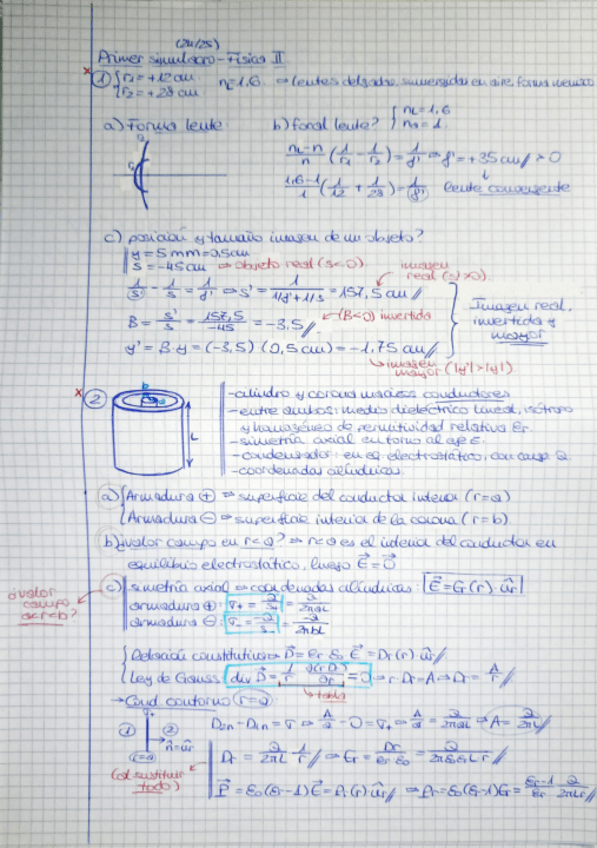 (24/25)
Primer simulacro - Física II
x ① { r₁ = +12 cm. n_L = 1,6 ⇒ lentes delgadas, sumergidas en aire, forma menisco
r₂ = +28 cm
a) Forma lente b) focal lente? { n_L = 1,6
n_a = 1
(n_L - n)/n (1/r₁ - 1/r₂) = 1/f' ⇒ f' = +35 cm // > 0
(1,6-1)/1 (1/12 + 1/28) = 1/f' lente convergente
c) posición y tamaño imagen de un objeto?
y = 5 mm = 0,5 cm
s = -45 cm ⇒ objeto real (s<0) imagen real (s'>0).
1/s' - 1/s = 1/f' ⇒ s' = 1/(1/f' + 1/s) = 157,5 cm //
B = s'/s = 157,5/-45 = -3,5 // (B<0) invertida
Imagen real, invertida y mayor
y' = B·y = (-3,5) (0,5 cm) = -1,75 cm //
↳ imagen mayor (|y'|>|y|)
x ② b a L
- cilindro y corona macizos conductores
- entre ambos: medio dieléctrico lineal, isótropo
y homogéneo de permitividad relativa εr.
- simetría axial en torno al eje z.
- condensador: en eq electrostático, con carga Q.
- coordenadas cilíndricas.
a) { Armadura ⊕ ⇒ superficie del conductor interior (r=a)
Armadura ⊖ ⇒ superficie interior de la corona (r=b)
b) ¿valor campo en r<a? ⇒ r<a es el interior del conductor en
equilibrio electrostático, luego E⃗ = 0⃗
¿valor campo a<r<b?
c) simetría axial ⇒ coordenadas cilíndricas: E⃗ = Er(r) · ûr
armadura ⊕: σ₊ = Q/S₊ = Q/2πaL
armadura ⊖: σ₋ = -Q/S₋ = -Q/2πbL
{ Relación constitutiva ⇒ D⃗ = εr ε₀ E⃗ = Dr(r) ûr //
Ley de Gauss: div D⃗ = 1/r ∂(rD)/∂r = 0 ⇒ r·Dr = A ⇒ Dr = A/r //
↳ tabla
→ Cond contorno (r=a)
D₂n - D₁n = σ ⇒ A/a - 0 = σ₊ ⇒ A/a = Q/2πaL ⇒ A = Q/2πL //
① ② σ₊ n̂ = ûr (r=a)
Dr = Q/2πL 1/r // ⇒ Er = Dr/εr ε₀ = Q/2πε₀εr L r //
(al sustituir todo)
P⃗ = ε₀(εr-1) E⃗ = Pr(r) · ûr // ⇒ Pr = ε₀(εr-1)Er = (εr-1)/εr Q/2πLr //